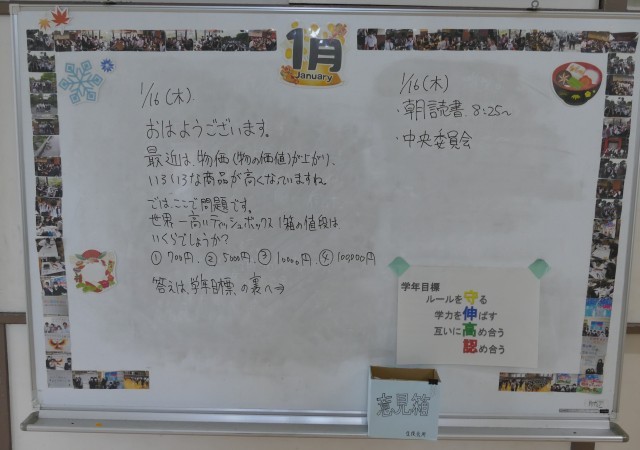 1月
January
1/16(木)
おはようございます。
最近は、物価(物の価値)が上がり、
いろいろな商品が高くなっていますね。
では、ここで問題です。
世界一高いティッシュボックス1箱の値段は
いくらでしょうか?
① 700円. ② 5000円. ③ 10000円. ④ 100,000円
答えは、学年目標の裏へ→
1/16(木)
・朝読書 8:25~
・中央委員会
学年目標
ルールを守る
学力を伸ばす
互いに高め合う
認め合う
意見箱